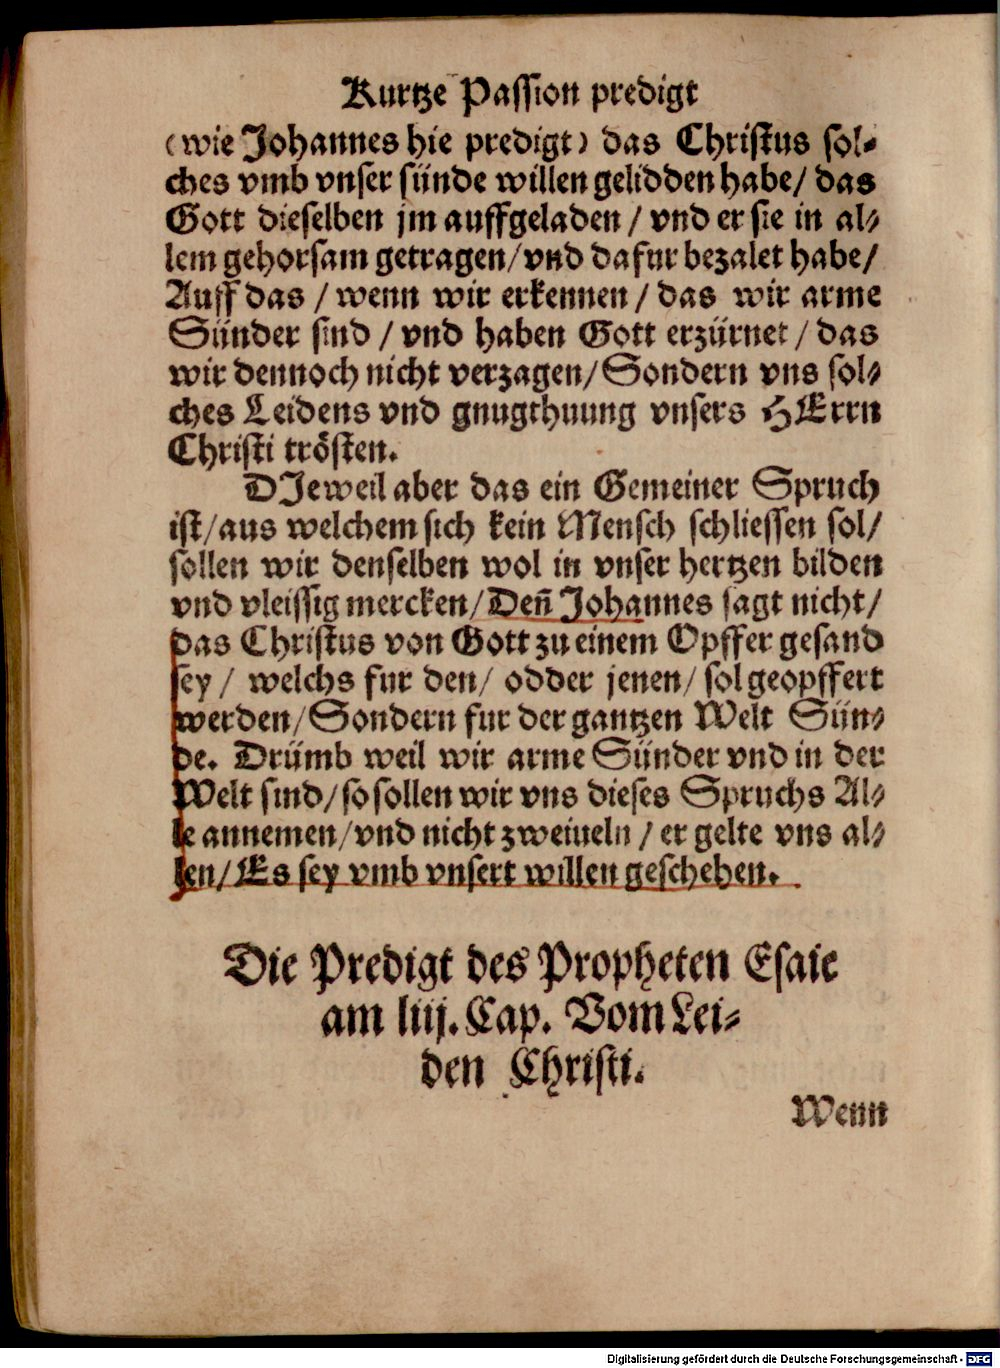 Kurtze Passion predigt
(wie Johannes hie predigt) das Christus sol⸗
ches vmb vnser sünde willen gelidden habe/ das
Gott dieselben jm auffgeladen / vnd er sie in al⸗
lem gehorsam getragen/ vnd dafur bezalet habe/
Auff das / wenn wir erkennen / das wir arme
Sünder sind / vnd haben Gott erzürnet / das
wir dennoch nicht verzagen/ Sondern vns sol⸗
ches Leidens vnd gnugthuung vnsers HErrn
Christi trösten.
DJeweil aber das ein Gemeiner Spruch
ist/ aus welchem sich kein Mensch schliessen sol/
sollen wir denselben wol in vnser hertzen bilden
vnd vleissig mercken/ Deñ Johannes sagt nicht/
das Christus von Gott zu einem Opffer gesand
sey / welchs fur den/ odder jenen/ sol geopffert
werden/ Sondern fur der gantzen Welt Sün⸗
de. Drümb weil wir arme Sünder vnd in der
Welt sind/ so sollen wir vns dieses Spruchs Al⸗
le annemen/ vnd nicht zweiueln / er gelte vns al⸗
len/ Es sey vmb vnsert willen geschehen.
Die Predigt des Propheten Esaie
am liij. Cap. Vom Lei⸗
den Christi.
Wenn
Digitalisierung gefördert durch die Deutsche Forschungsgemeinschaft - DFG